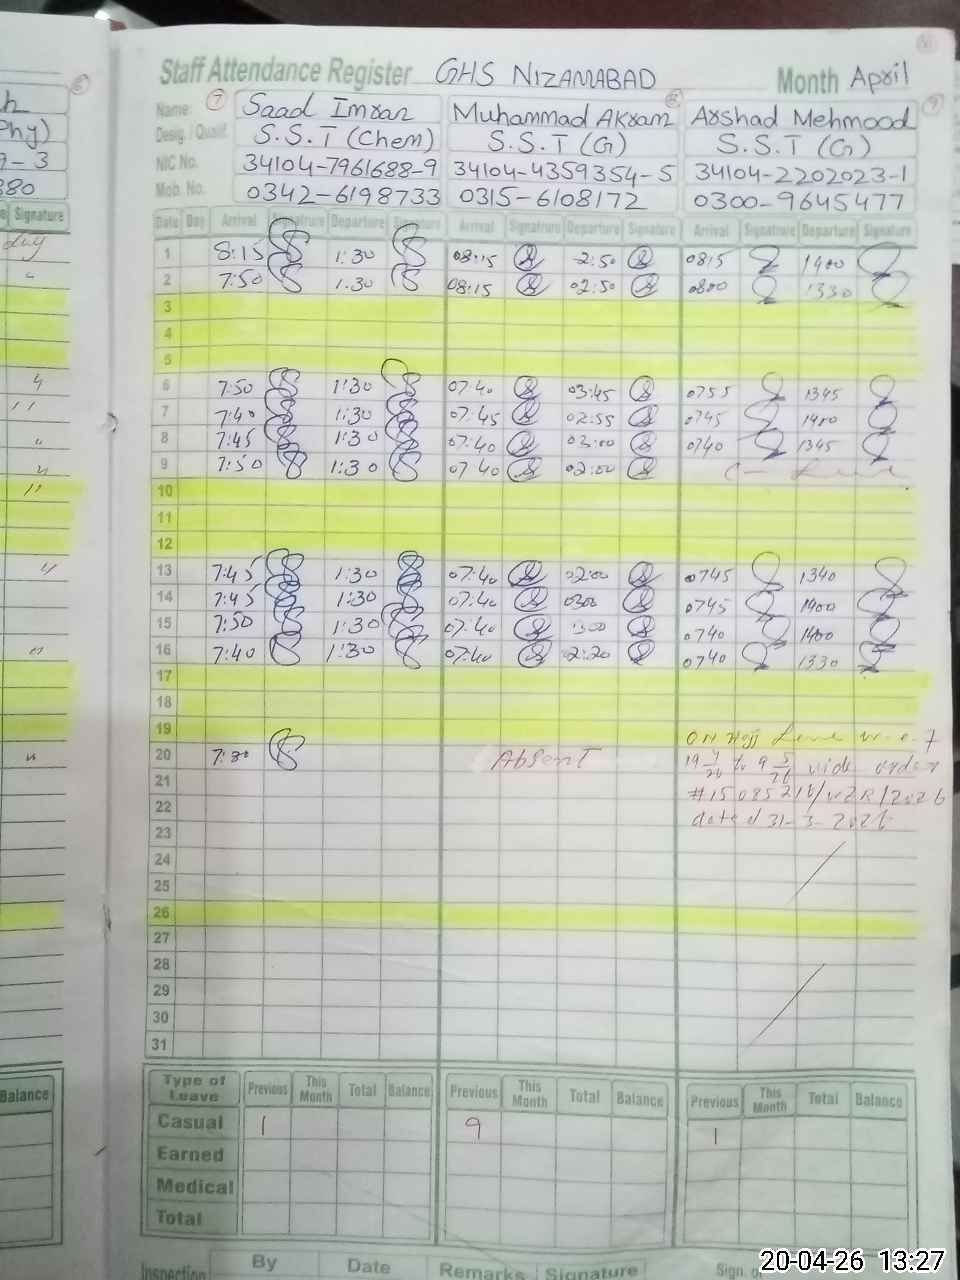 h
Phy)
9-3
880
Signature
Balance
Staff Attendance Register GHS NIZAMABAD Month April
Name: 7 Saad Imran 8 Muhammad Akram 9 Arshad Mehmood
Desig. / Qualif. S.S.T (Chem) S.S.T (G) S.S.T (G)
NIC No. 34104-7961688-9 34104-4359354-5 34104-2202023-1
Mob. No. 0342-6198733 0315-6108172 0300-9645477
Date Day Arrival Signatrure Departure Signature Arrival Signatrure Departure Signature Arrival Signatrure Departure Signature
1 8:15 1:30 08:15 2:50 0815 1400
2 7:50 1.30 08:15 02:50 0800 1330
3
4
5
6 7:50 1:30 07:40 03:45 0755 1345
7 7:40 1:30 07:45 02:55 0745 1400
8 7:45 1:30 07:40 03:00 0740 1345
9 7:50 1:30 07 40 02:00 C- Leave
10
11
12
13 7:45 1:30 07:40 02:00 0745 1340
14 7:45 1:30 07:40 0300 0745 1400
15 7:50 1:30 07:40 300 0740 1400
16 7:40 1:30 07:40 02:20 0740 1330
17
18
19 Leave w.e.f
20 7:30 Absent 19 4/26 to 9 5/26 vide order
21
22 dated 31-3-2026
23
24
25
26
27
28
29
30
31
Type of Leave Previous This Month Total Balance Previous This Month Total Balance Previous This Month Total Balance
Casual 1 9 1
Earned
Medical
Total
Inspection By Date Remarks Signature Sign. of
20-04-26 13:27